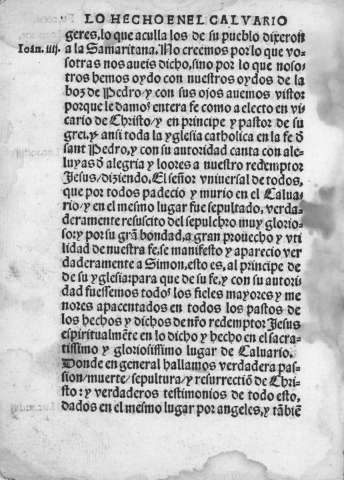 LO HECHO EN EL CALVARIO
geres, lo que aculla los de su pueblo dixeron
Ioan. iiij. a la Samaritana. No creemos por lo que vo-
sotras nos aueis dicho, sino por lo que noso-
tros hemos oydo con nuestros oydos de la
boz de Pedro/ y con sus ojos auemos visto:
porque le damos entera fe como a electo en vi-
cario de Christo/ y en principe y pastor de su
grei, y ansi toda la yglesia catholica en la fe đ
sant Pedro, y con su autoridad canta con ale-
luyas đ alegria y loores a nuestro redemptor
Jesus/ diziendo. El señor vniuersal de todos,
que por todos padecio y murio en el Calua-
rio/ y en el mesmo lugar fue sepultado, verda-
deramente resuscito del sepulchro muy glorio-
so: y por su grã bondad, a gran prouecho y vti
lidad de nuestra fe, se manifesto y aparecio ver
daderamente a Simon, esto es, al principe de
de su yglesia: para que de su fe, y con su autori
dad fuessemos todos los fieles mayores y me
nores apacentados en todos los pastos de
los hechos y dichos de nro redemptor Jesus
espiritualmẽte en lo dicho y hecho en el sacra-
tissimo y gloriosissimo lugar de Caluario.
Donde en general hallamos verdadera pas-
sion/ muerte/ sepultura/ y resurrectiõ de Chri-
sto: y verdaderos testimonios de todo esto,
dados en el mesmo lugar por angeles, y tãbiẽ